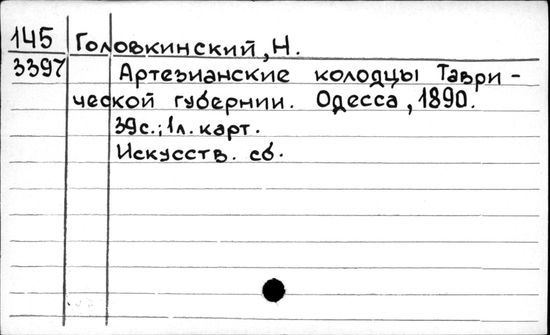 145 Головкинский, Н.
3397 Артезианские колодцы Таври-
ческой губернии. Одесса, 1890.
39с.; 1л. карт.
Искусств. сб.